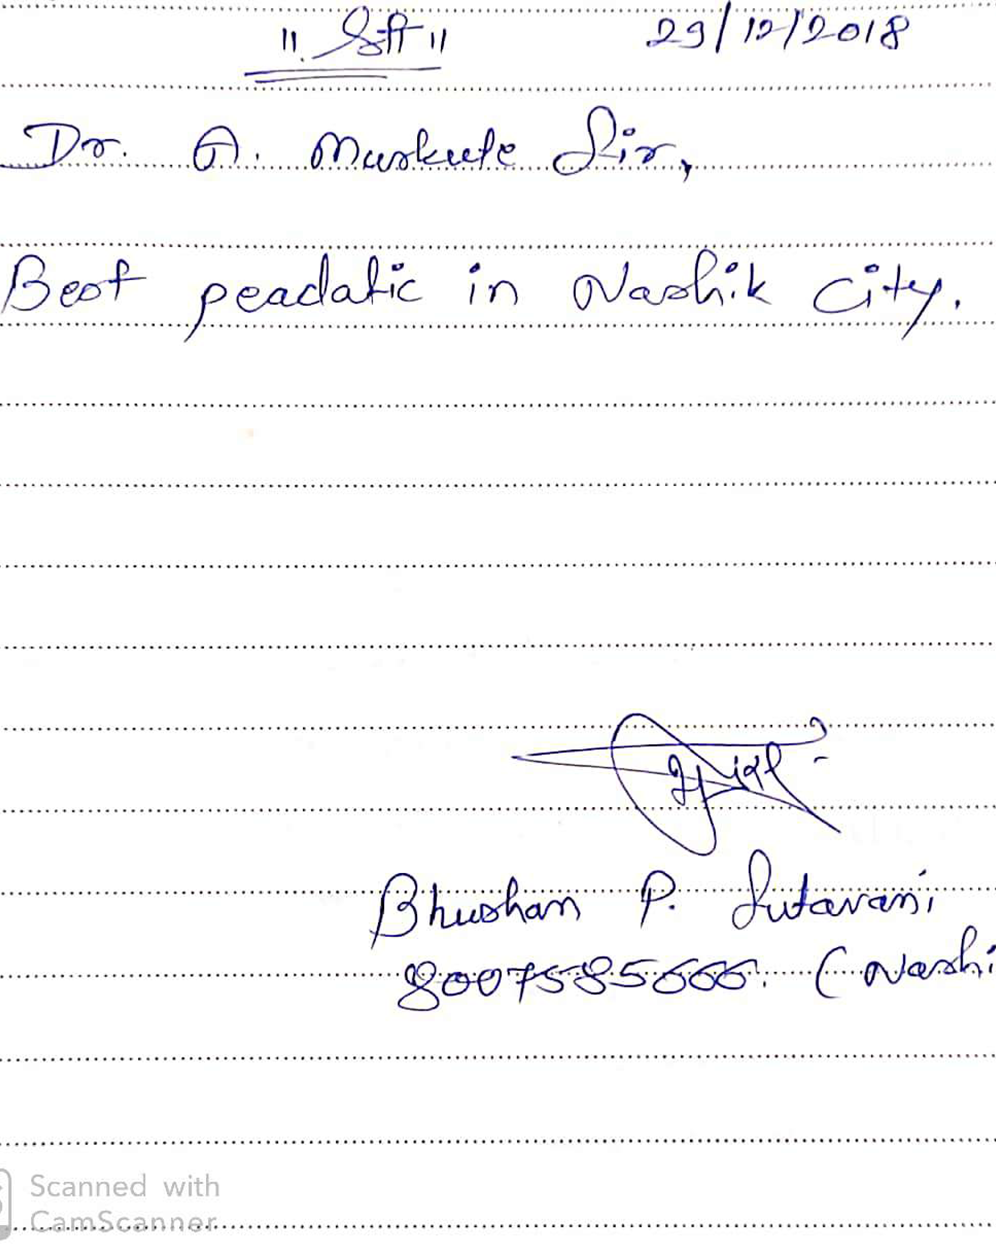 ॥ श्री ॥ 29/12/2018
Dr. A. Murkute Sir,
Best peadatic in Nashik City.
Bhushan P. Sutavani
8007585666. (Nashi
Scanned with
CamScanner